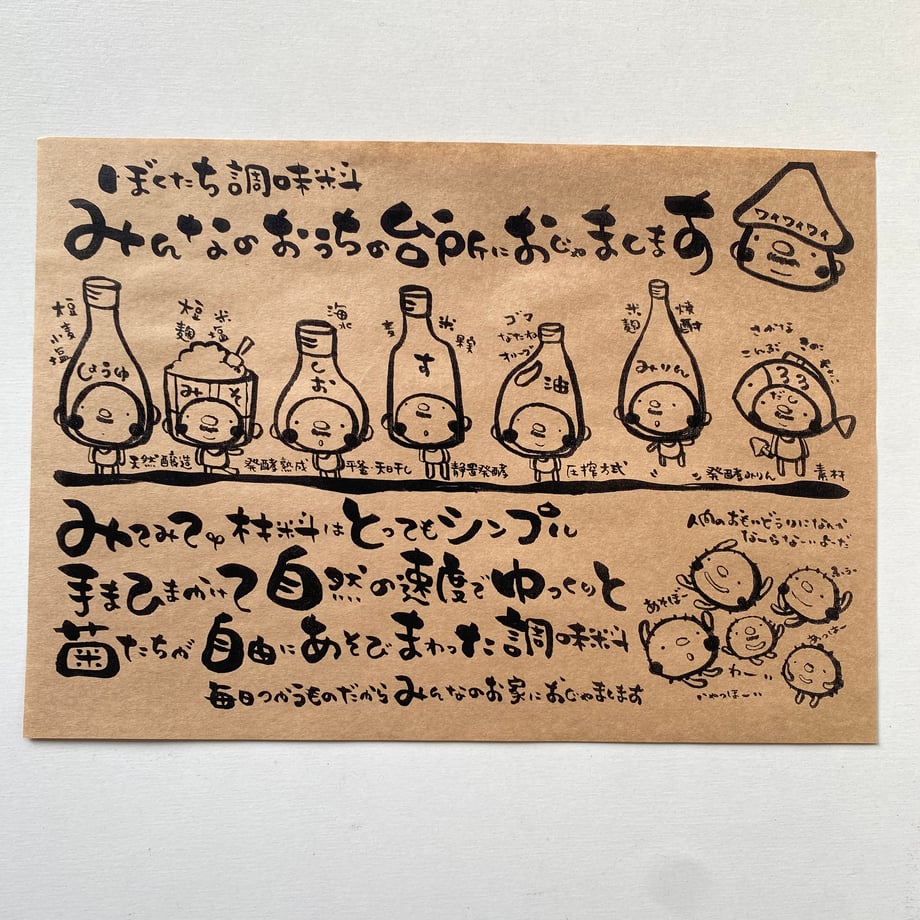 ぼくたち調味料
みんなのおうちの台所におじゃまします
ワイワイワイ
大豆
小麦
塩
しょうゆ
大豆
米
麹
塩
みそ
海水
しお
麦
米
果実
す
ゴマ
なたね
オリーブ
油
米
麹
焼酎
みりん
さかな
こんぶ
きのこ
だし
天然醸造
発酵熟成
平釜・天日干し
静置発酵
圧搾方式
発酵みりん
素材
みてみてゆ材料はとってもシンプル
手まひまかけて自然の速度でゆっくりと
菌たちが自由にあそびまわった調味料
毎日つかうものだからみんなのお家におじゃまします
人間のおもいどうりになんか
なーらなーいよーだ
あそぼー
わーい